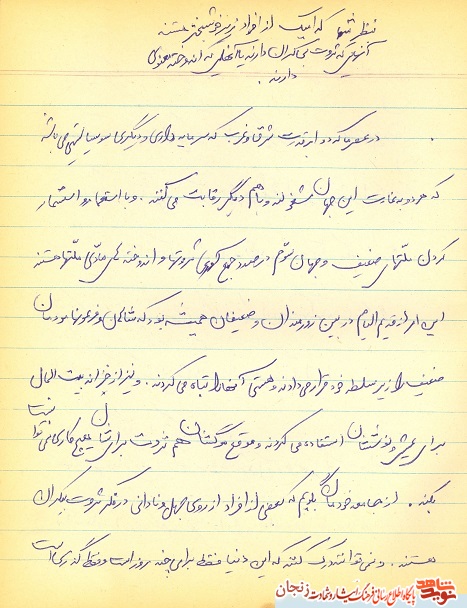 بنظر شما کدامیک از افراد زیر خوشبختر هستند
آنهایی که ثروت بیکران دارند یا آنهایی که اندوخته معنوی
دارند.
در عصر ما که دو ابرقدرت شرق و غرب که سرمایه داری و دیگری سوسیالیستی می باشد
که هر دو به غارت این جهان مشغولند و با هم دیگر رقابت می کنند. و با استعمار و استثمار
کردن ملتهای ضعیف و جهان سوم درصدد جمع کردن ثروتها و اندوخته های مادی ملتها هستند
این امر از قدیم الایام در بین زورمندان و ضعیفان همیشه بوده که شاهان و فرعونها مردمان
ضعیف را زیر سلطه خود قرار می دادند و هستی آنها را تباه می کردند. و نیز از خزانه بیت المال
برای عیش و نوششان استفاده می کردند و موقع مرگشان هم ثروت برایشان هیچ کاری نمی توانست
بکند. از جامعه خودمان بگویم که بعضی از افراد از روی جهل و نادانی در فکر ثروت بیکران
هستند. و نمی توانند درک کنند که این دنیا فقط برای چند روز است و فقط گذری است
نوید شاهد
پایگاه اطلاع رسانی فرهنگ ایثار و شهادت زنجان